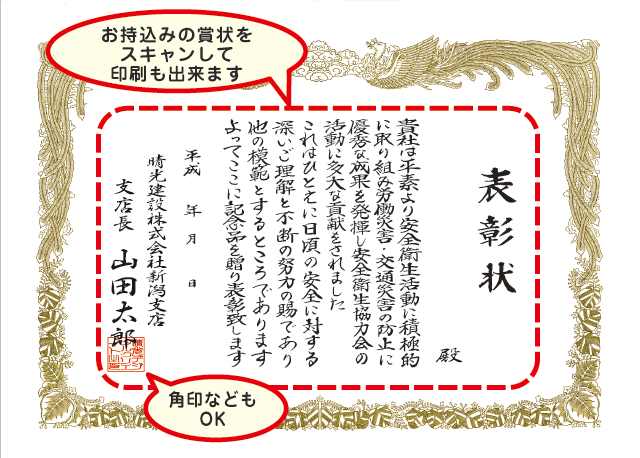 お持込みの賞状を
スキャンして
印刷も出来ます
表彰状
殿
貴社は平素より安全衛生活動に積極的
に取り組み労働災害・交通災害の防止に
優秀な成果を発揮し安全衛生協力会の
活動に多大な貢献をされました
これはひとえに日頃の安全に対する
深いご理解と不断の努力の賜であり
他の模範とするところであります
よってここに記念品を贈り表彰致します
平成 年 月 日
晴光建設株式会社新潟支店
支店長 山田太郎
角印なども
OK